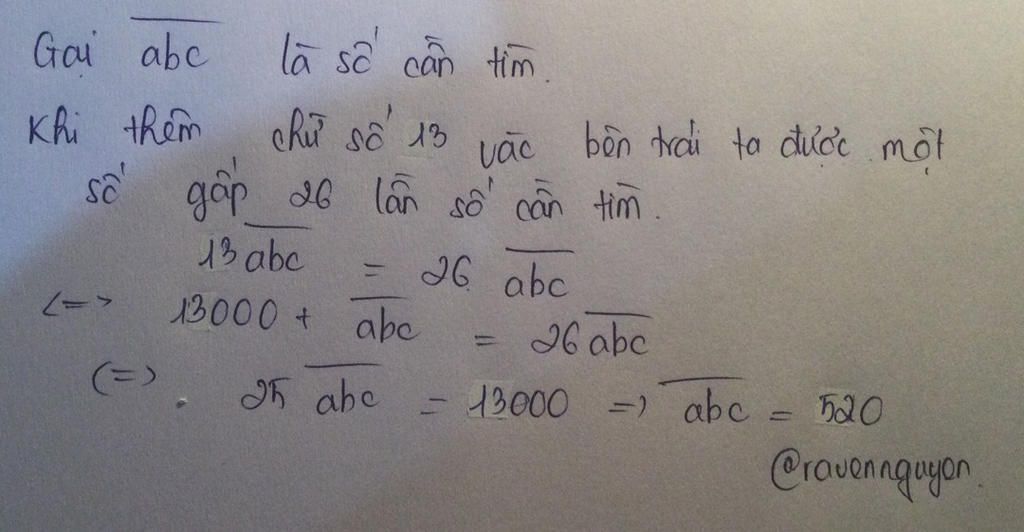 Gọi abc là số cần tìm.
Khi thêm chữ số 13 vào bên trái ta được một
số gấp 26 lần số cần tìm.
13abc = 26 abc
<=> 13000 + abc = 26abc
(=) 25 abc = 13000 => abc = 520
@ravennguyen.